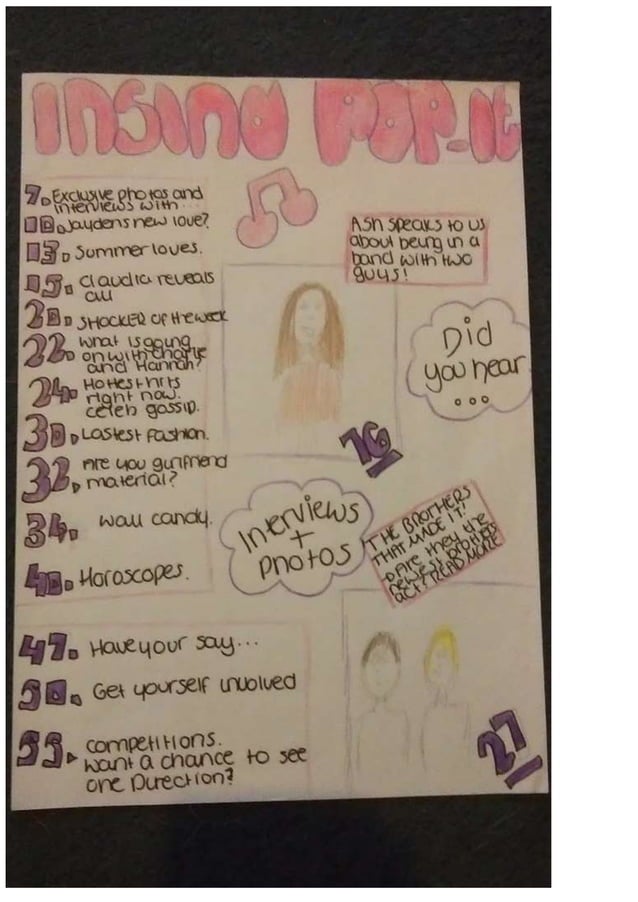 Insind POP-It
7. Exclusive photos and
interviews with...
10. Jaydens new love?
13. Summer loves.
15. Claudia reveals
all
20. SHOCKER OF the week
22. What is going
on with Charlie
and Hannah?
24. Hottest hits
right now.
celeb gossip.
30. Lastest Fashion.
32. Are you gurlfriend
material?
34. wall candy.
40. Horoscopes.
47. Have your say...
50. Get yourself involved
55. competitions.
want a chance to see
one Direction?
Ash speaks to us
about being in a
band with two
guys!
Did
you hear
...
16
Interviews
+
photos
THE BROTHERS
THAT MADE IT!
Are they the
newest brothers
act? READ MORE
27